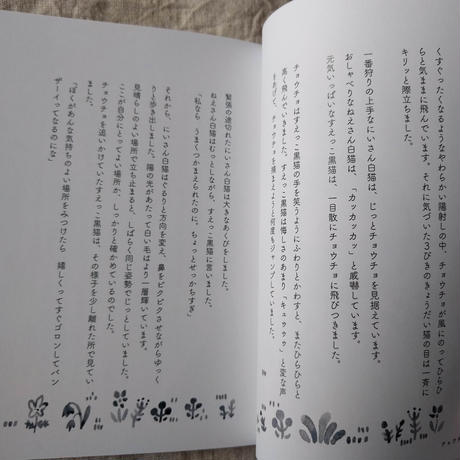 くすぐったくなるようなやわらかい陽射しの中、チョウチョが風にのってひらひ
らと気ままに飛んでいます。それに気づいた3びきのきょうだい猫の目は一斉に
キリッと際立ちました。
一番狩りの上手なにいさん白猫は、じっとチョウチョを見据えています。
おしゃべりなねえさん白猫は、「カッカッカッ」と威嚇しています。
元気いっぱいなすえっこ黒猫は、一目散にチョウチョに飛びつきました。
チョウチョはすえっこ黒猫の手を笑うようにふわりとかわすと、またひらひらと
高く飛んでいきました。すえっこ黒猫は悔しさのあまり「キュゥゥゥ」と変な声
をあげて、チョウチョを捕まえようと何度もジャンプしていました。
緊張の途切れたにいさん白猫は大きなあくびをしました。
ねえさん白猫はむっとしながら、すえっこ黒猫に言いました。
「私なら、うまくつかまえられたのに。ちょっとせっかちすぎ」
それから、にいさん白猫はぐるりと方向を変え、鼻をピクピクさせながらゆっく
りと歩きはじめました。陽の光があたって白い毛はより一層輝いています。
見晴らしのよい場所で立ち止まると、しばらく同じ姿勢でじっとしていました。
ここが自分にとってよい場所か、しっかりと確かめているのでした。
チョウチョを追いかけていたすえっこ黒猫は、その様子を少し離れた所で見てい
ました。
「ぼくがあんな気持ちのよい場所をみつけたら、嬉しくってすぐゴロンしてバン
ザーイってなるのにな」